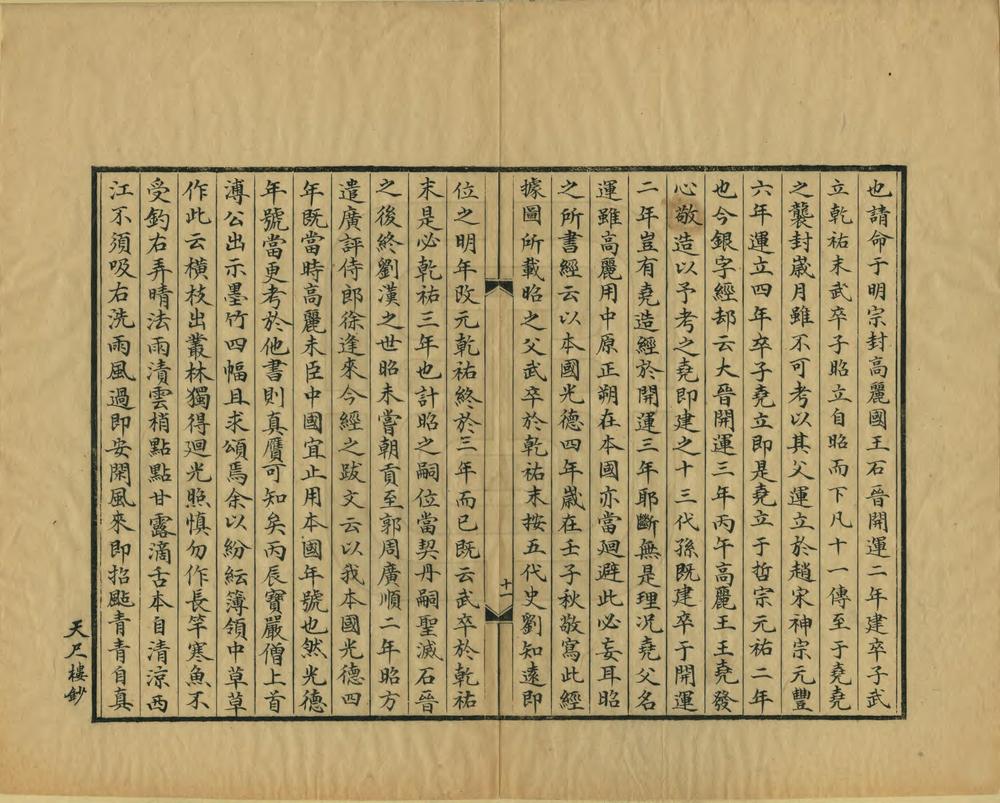 也請命于明宗封高麗國王石晉開運二年建卒子武
立乾祐末武卒子昭立自昭而下凡十一傳至于堯堯
之襲封嵗月雖不可考以其父運立於趙宋神宗元豐
六年運立四年卒子堯立即是堯立于哲宗元祐二年
也今銀字經却云大晉開運三年丙午高麗王王堯發
心敬造以予考之堯即建之十三代孫既建卒于開運
二年豈有堯造經於開運三年耶斷無是理况堯父名
運雖高麗用中原正朔在本國亦當廻避此必妄耳昭
之所書經云以本國光德四年嵗在壬子秋敬寫此經
據圖所載昭之父武卒於乾祐末按五代史劉知遠即
十一
位之明年改元乾祐終於三年而已既云武卒於乾祐
末是必乾祐三年也計昭之嗣位當契丹嗣聖滅石晉
之後終劉漢之世昭未嘗朝貢至郭周廣順二年昭方
遣廣評侍郎徐逢來今經之跋文云以我本國光德四
年既當時高麗未臣中國宜止用本國年號也然光德
年號當更考於他書則真贋可知矣丙辰寶嚴僧上首
溥公出示墨竹四幅且求頌焉余以紛紜簿領中草草
作此云橫枝出叢林獨得廻光照慎勿作長竿寒魚不
受釣右弄晴法雨漬雲梢點點甘露滴舌本自清涼西
江不須吸右洗雨風過即安閑風來即招颭青青自真
天尺樓鈔